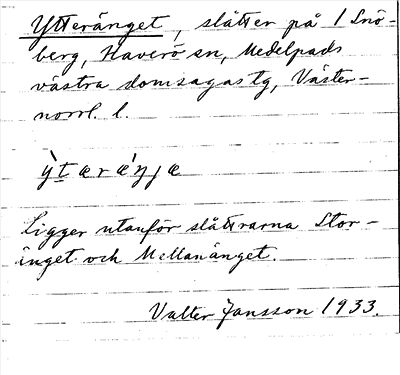 Ytteränget, slåtter på 1 Snö-
berg, Haverö sn, Medelpads
västra domsagas tg, Väster-
norrl. l.
ỳtærǽŋjæ
Ligger utanför slåttrarna Stor-
änget och Mellanänget.
Valter Jansson 1933.